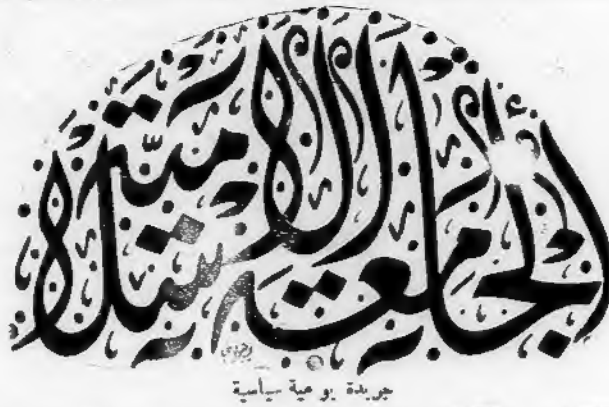 الجامعة الاسلامية
جريدة يومية سياسية